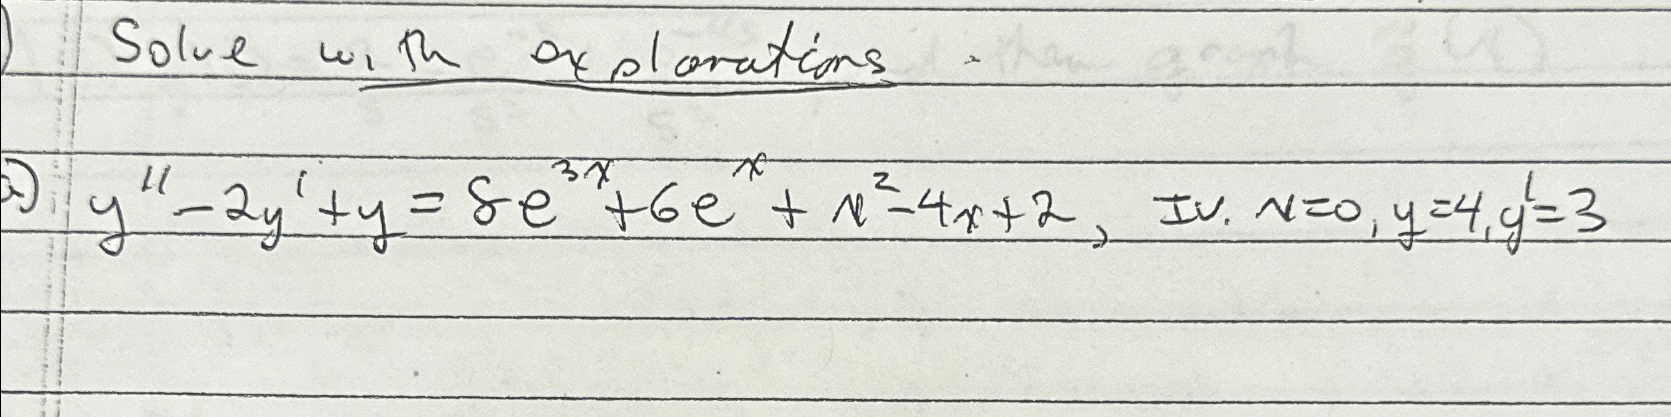 Solve with explanations.
a) y'' - 2y' + y = 8e^{3x} + 6e^x + x^2 - 4x + 2, IV. x=0, y=4, y'=3